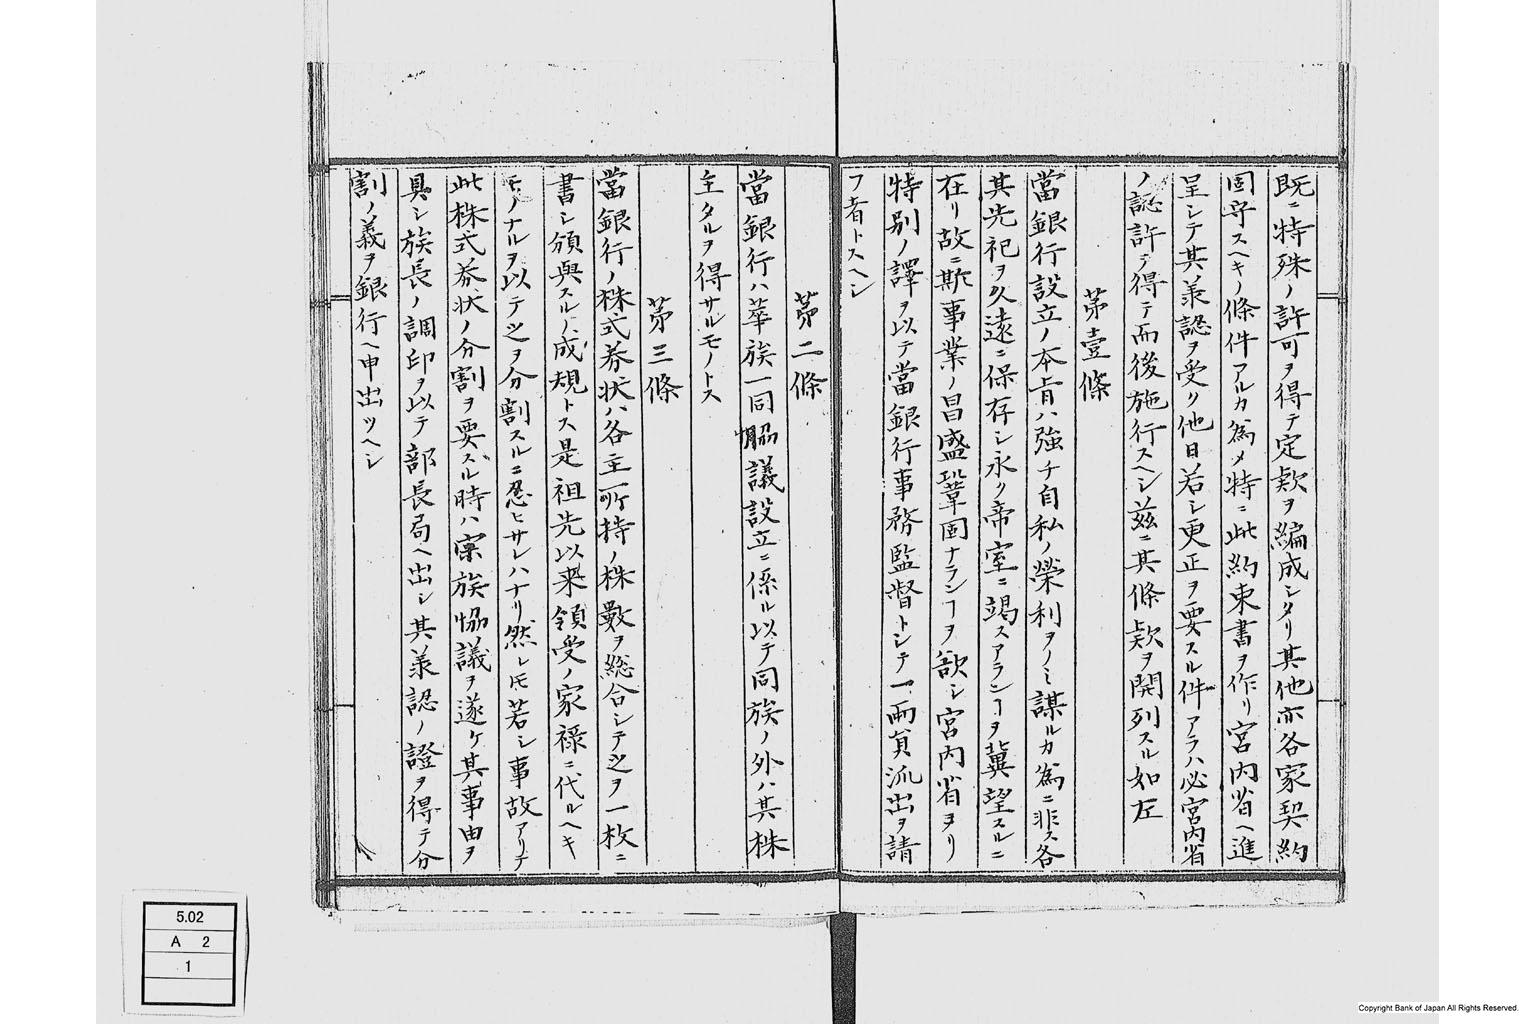 既ニ特殊ノ許可ヲ得テ定款ヲ編成シタリ其他亦各家契約
固守スヘキノ條件アルカ為メ特ニ此約束書ヲ作リ宮内省ヘ進
呈シテ其羕認ヲ受ク他日若シ更正ヲ要スル件アラハ必宮内省
ノ認許ヲ得テ而後施行スヘシ茲ニ其條款ヲ開列スル如左
苐壹條
當銀行設立ノ本旨ハ強チ自私ノ榮利ヲノミ謀ルカ為ニ非ス各
其先祀ヲ久遠ニ保存シ永ク帝室ニ竭スアランヿヲ冀望スルニ
在リ故ニ斯事業ノ昌盛鞏固ナランヿヲ欲シ宮内省ヨリ
特別ノ譯ヲ以テ當銀行事務監督トシテ一両員派出ヲ請
フ者トスヘシ
苐二條
當銀行ハ華族一同協議設立ニ係ル以テ同族ノ外ハ其株
主タルヲ得サルモノトス
苐三條
當銀行ノ株式券状ハ各主所持ノ株數ヲ総合シテ之ヲ一枚ニ
書シ頒與スルノ成規トス是祖先以来領受ノ家禄ニ代ルヘキ
モノナルヲ以テ之ヲ分割スルニ忍ヒサレハナリ然レ𪜈若シ事故アリテ
此株式券状ノ分割ヲ要スル時ハ宗族協議ヲ遂ケ其事由ヲ
具シ族長ノ調印ヲ以テ部長局ヘ出シ其羕認ノ證ヲ得テ分
割ノ義ヲ銀行ヘ申出ツヘシ
5.02
A 2
1
Copyright Bank of Japan All Rights Reserved.